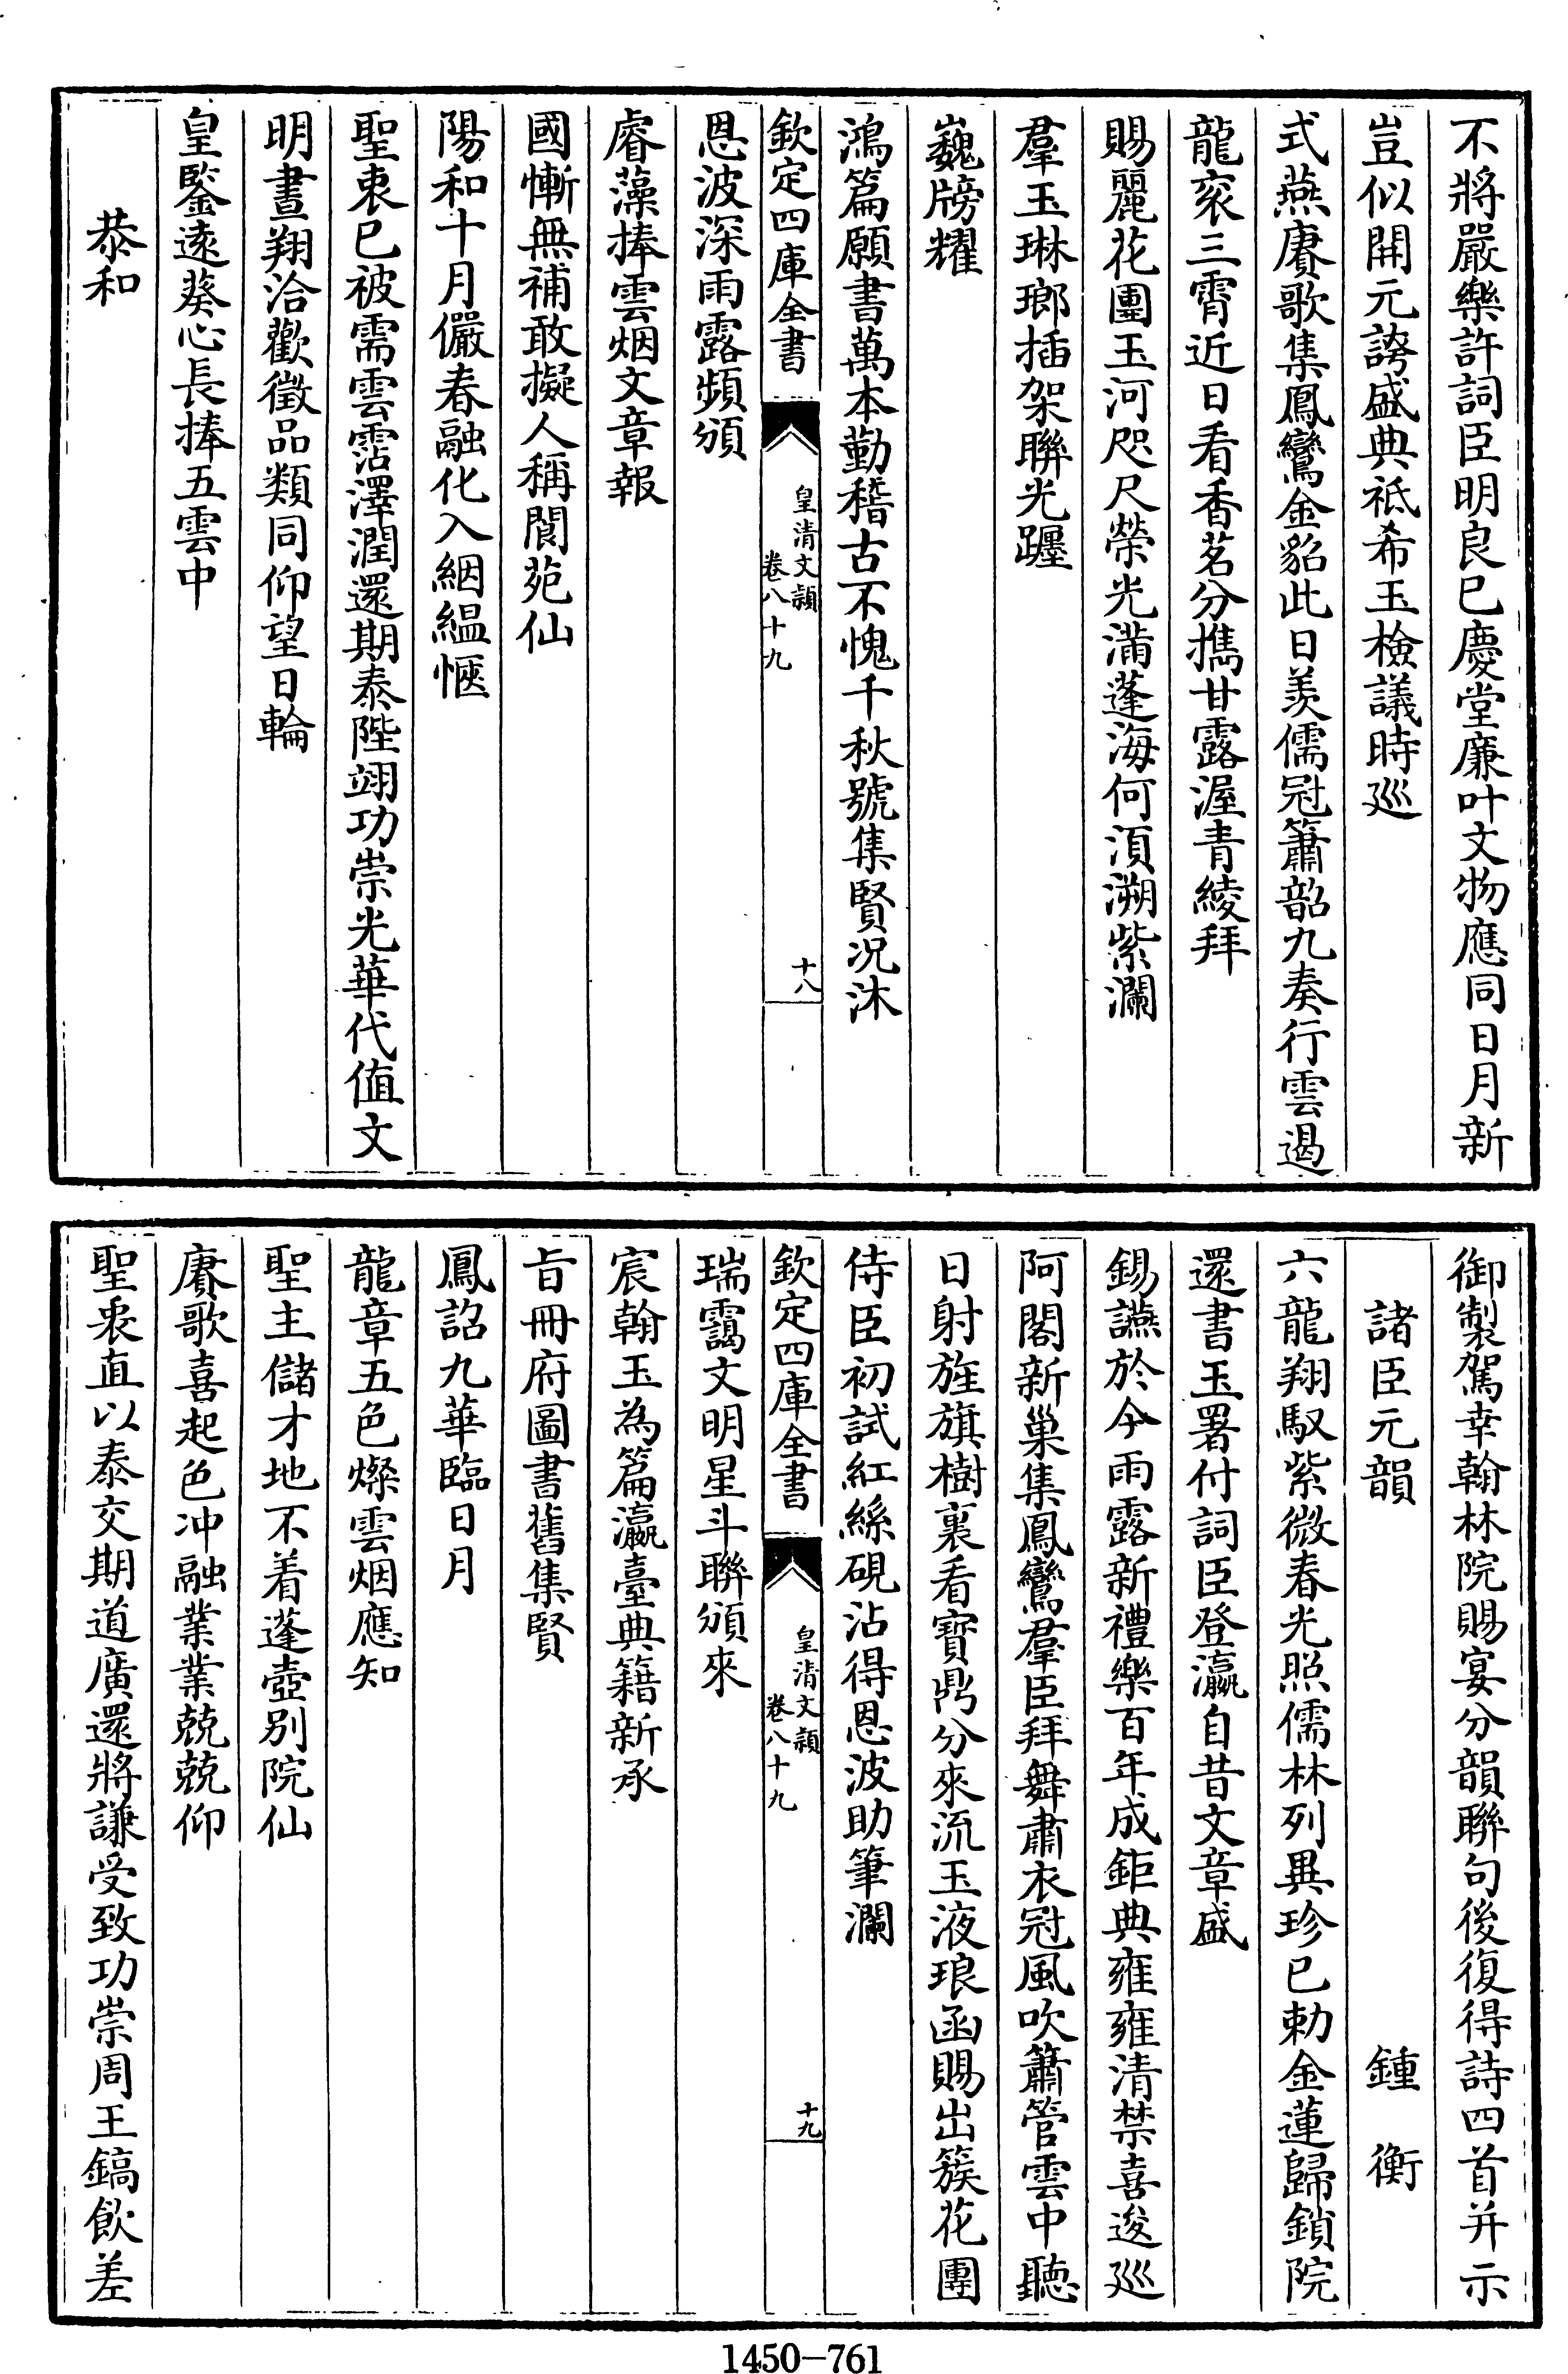 不將嚴樂許詞臣明良已慶堂廉叶文物應同日月新
豈似開元誇盛典祗希玉檢議時廵
式燕賡歌集鳳鸞金貂此日羨儒冠簫韶九奏行雲遏
龍衮三霄近日看香茗分擕甘露渥青綾拜
賜麗花團玉河咫尺榮光滿蓬海何湏溯紫瀾
羣玉琳瑯插架聯光躔
巍牓耀
鴻篇願書萬本勤稽古不愧千秋號集賢况沐
欽定四庫全書
皇清文頴
卷八十九
十八
恩波深雨露頻頒
睿藻捧雲烟文章報
國慚無補敢擬人稱閬苑仙
陽和十月儼春融化入絪緼愜
聖衷已被需雲霑澤潤還期泰陛翊功崇光華代值文
明晝翔洽歡徵品類同仰望日輪
皇鑒遠葵心長捧五雲中
恭和
御製駕幸翰林院賜宴分韻聯句後復得詩四首并示
諸臣元韻
鍾衡
六龍翔馭紫微春光照儒林列異珍已勅金蓮歸鎖院
還書玉署付詞臣登瀛自昔文章盛
錫讌於今雨露新禮樂百年成鉅典雍雍清禁喜逡廵
阿閣新巢集鳳鸞羣臣拜舞肅衣冠風吹簫管雲中聽
日射旌旗樹裏看寶鼎分來流玉液琅函賜出簇花團
侍臣初試紅絲硯沾得恩波助筆瀾
欽定四庫全書
皇清文頴
卷八十九
十九
瑞靄文明星斗聯頒來
宸翰玉為篇瀛臺典籍新承
旨冊府圖書舊集賢
鳳詔九華臨日月
龍章五色燦雲烟應知
聖主儲才地不着蓬壺别院仙
賡歌喜起色冲融業業兢兢仰
聖衷直以泰交期道廣還將謙受致功崇周王鎬飲差
1450-761